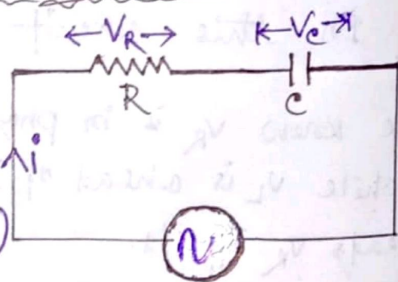 V_R V_C
R C
i